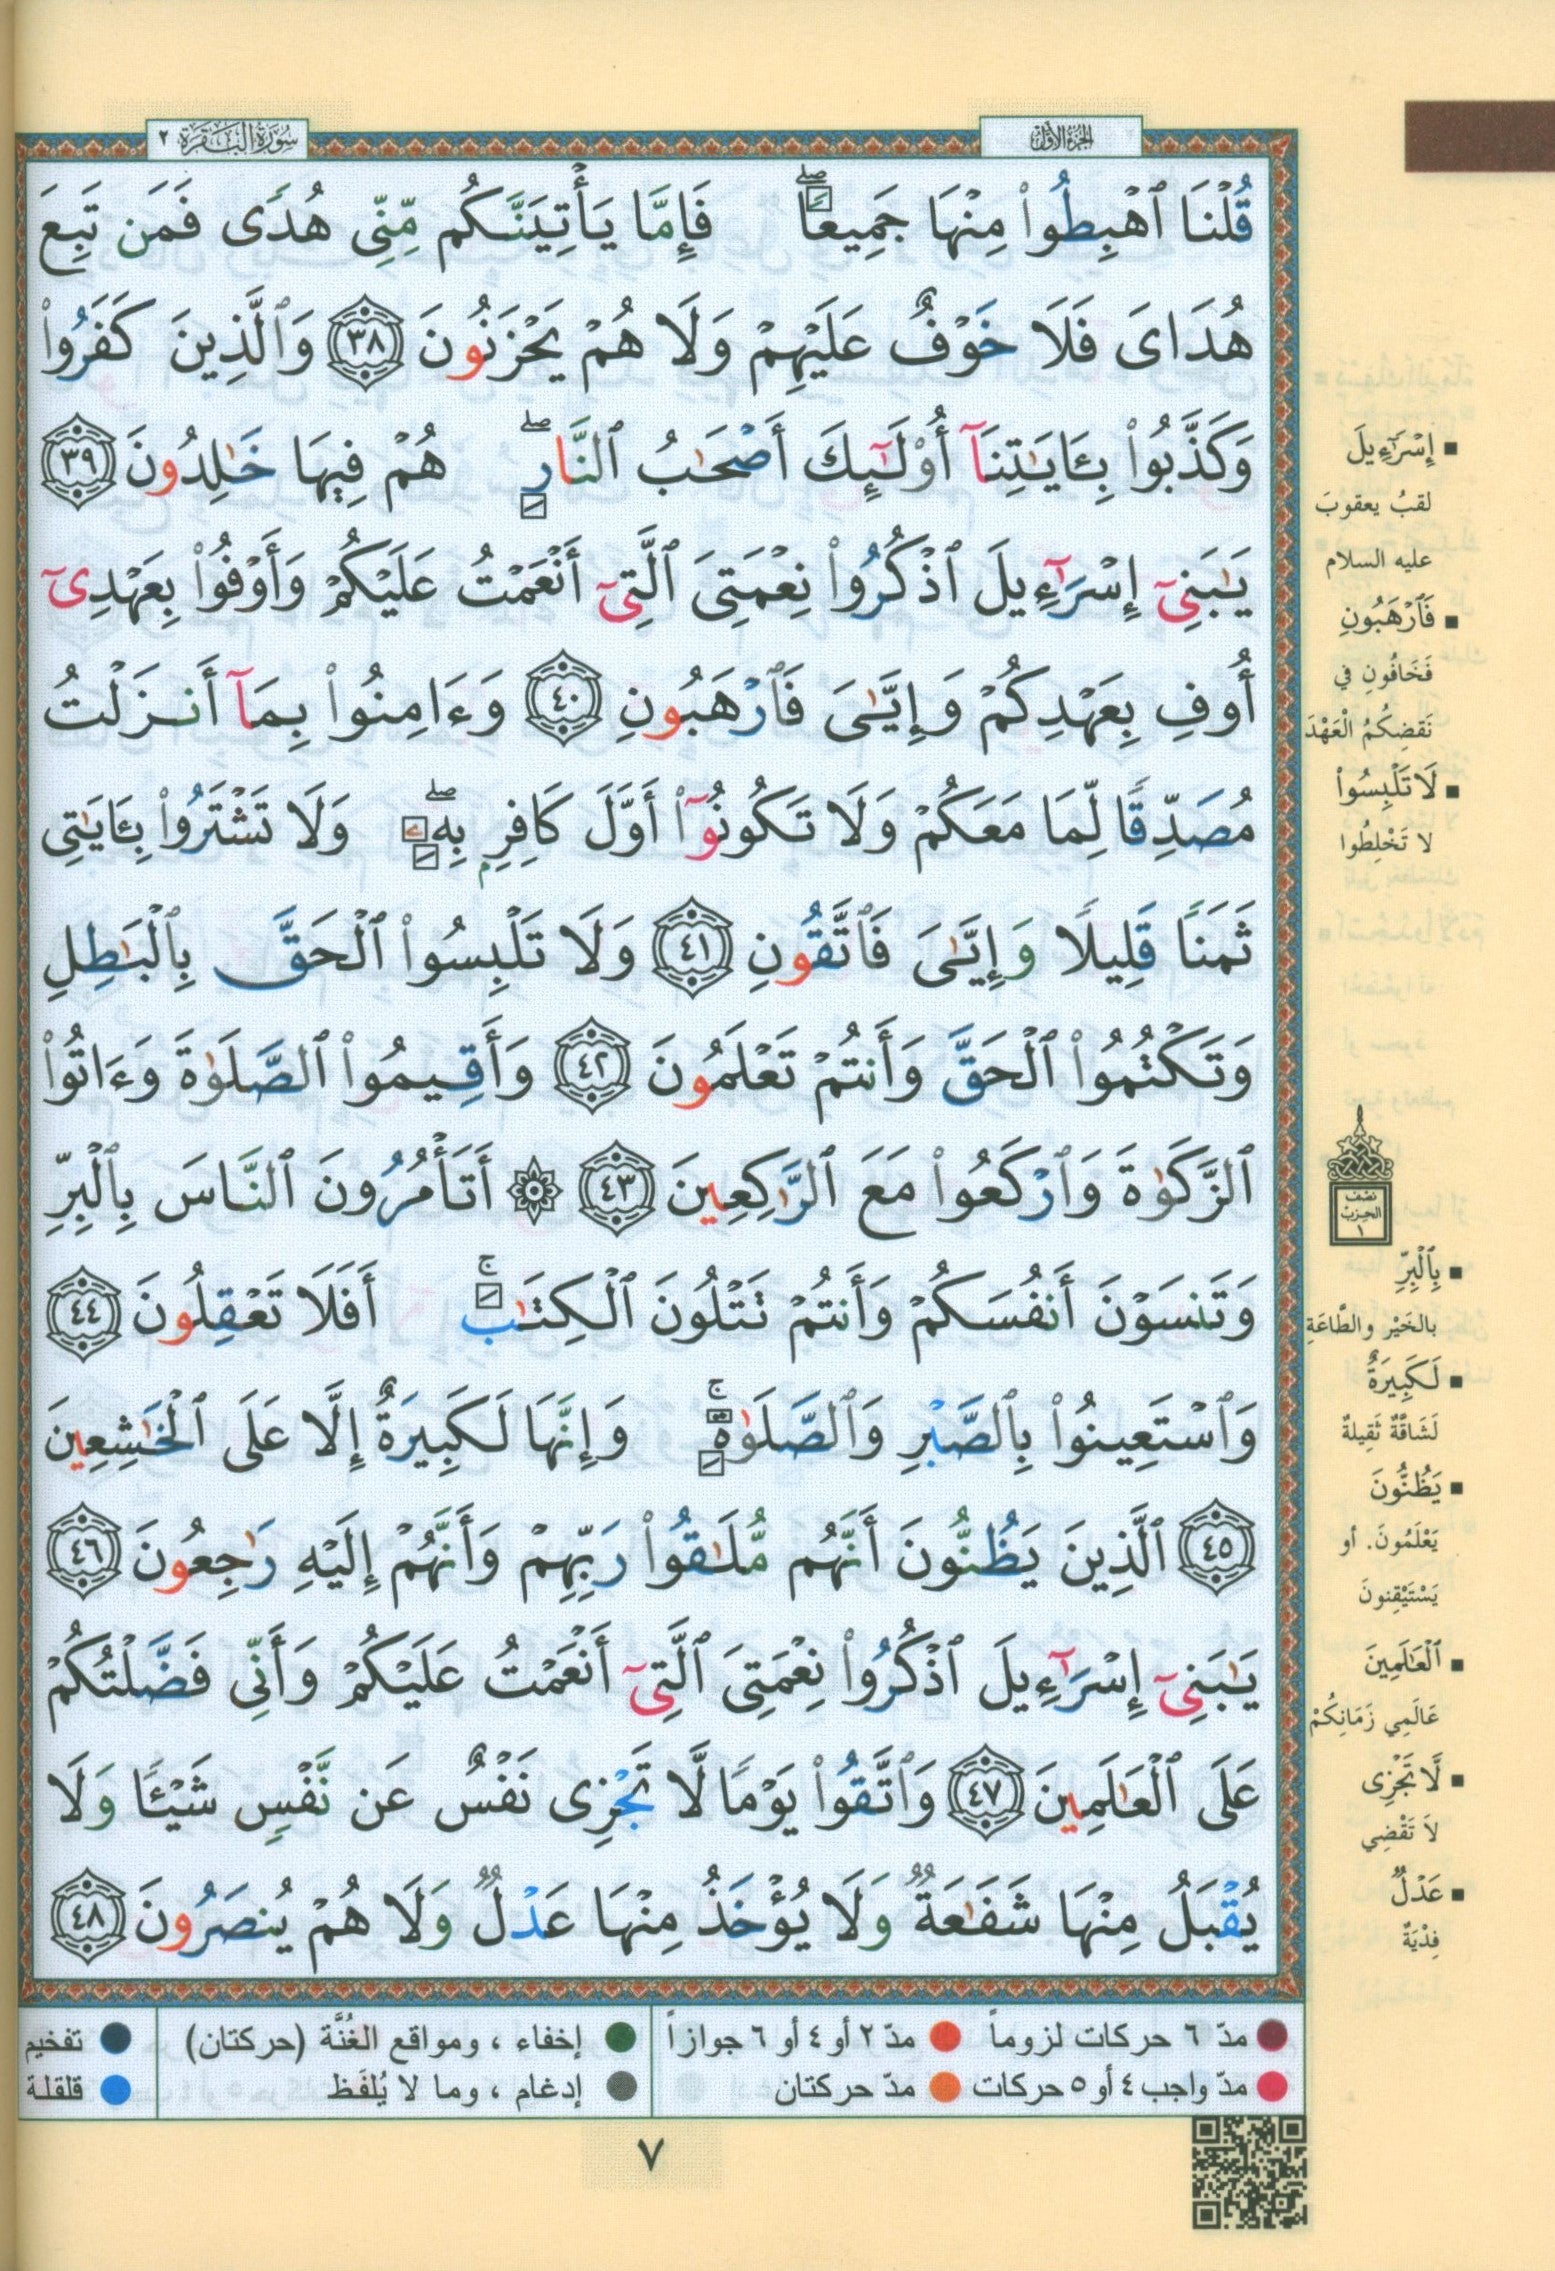 سُورَةُ البَقَرَة ٢
الجُزْءُ الأوّل
قُلْنَا ٱهْبِطُوا۟ مِنْهَا جَمِيعًا ۖ فَإِمَّا يَأْتِيَنَّكُم مِّنِّى هُدًى فَمَن تَبِعَ
هُدَاىَ فَلَا خَوْفٌ عَلَيْهِمْ وَلَا هُمْ يَحْزَنُونَ ٣٨ وَٱلَّذِينَ كَفَرُوا۟
وَكَذَّبُوا۟ بِـَٔايَـٰتِنَآ أُو۟لَـٰٓئِكَ أَصْحَـٰبُ ٱلنَّارِ ۖ هُمْ فِيهَا خَـٰلِدُونَ ٣٩
يَـٰبَنِىٓ إِسْرَٰٓءِيلَ ٱذْكُرُوا۟ نِعْمَتِىَ ٱلَّتِىٓ أَنْعَمْتُ عَلَيْكُمْ وَأَوْفُوا۟ بِعَهْدِىٓ
أُوفِ بِعَهْدِكُمْ وَإِيَّـٰىَ فَٱرْهَبُونِ ٤٠ وَءَامِنُوا۟ بِمَآ أَنزَلْتُ
مُصَدِّقًا لِّمَا مَعَكُمْ وَلَا تَكُونُوٓا۟ أَوَّلَ كَافِرٍۭ بِهِۦ ۖ وَلَا تَشْتَرُوا۟ بِـَٔايَـٰتِى
ثَمَنًا قَلِيلًا وَإِيَّـٰىَ فَٱتَّقُونِ ٤١ وَلَا تَلْبِسُوا۟ ٱلْحَقَّ بِٱلْبَـٰطِلِ
وَتَكْتُمُوا۟ ٱلْحَقَّ وَأَنتُمْ تَعْلَمُونَ ٤٢ وَأَقِيمُوا۟ ٱلصَّلَوٰةَ وَءَاتُوا۟
ٱلزَّكَوٰةَ وَٱرْكَعُوا۟ مَعَ ٱلرَّٰكِعِينَ ٤٣ ۞ أَتَأْمُرُونَ ٱلنَّاسَ بِٱلْبِرِّ
وَتَنسَوْنَ أَنفُسَكُمْ وَأَنتُمْ تَتْلُونَ ٱلْكِتَـٰبَ ۚ أَفَلَا تَعْقِلُونَ ٤٤
وَٱسْتَعِينُوا۟ بِٱلصَّبْرِ وَٱلصَّلَوٰةِ ۚ وَإِنَّهَا لَكَبِيرَةٌ إِلَّا عَلَى ٱلْخَـٰشِعِينَ
٤٥ ٱلَّذِينَ يَظُنُّونَ أَنَّهُم مُّلَـٰقُوا۟ رَبِّهِمْ وَأَنَّهُمْ إِلَيْهِ رَٰجِعُونَ ٤٦
يَـٰبَنِىٓ إِسْرَٰٓءِيلَ ٱذْكُرُوا۟ نِعْمَتِىَ ٱلَّتِىٓ أَنْعَمْتُ عَلَيْكُمْ وَأَنِّى فَضَّلْتُكُمْ
عَلَى ٱلْعَـٰلَمِينَ ٤٧ وَٱتَّقُوا۟ يَوْمًا لَّا تَجْزِى نَفْسٌ عَن نَّفْسٍ شَيْـًٔا وَلَا
يُقْبَلُ مِنْهَا شَفَـٰعَةٌ وَلَا يُؤْخَذُ مِنْهَا عَدْلٌ وَلَا هُمْ يُنصَرُونَ ٤٨
إِسْرَٰٓءِيلَ
لقبُ يعقوبَ
عليه السلام
فَٱرْهَبُونِ
فَخَافُونِ في
نَقضِكُمُ الْعَهْدَ
لَا تَلْبِسُوا۟
لا تَخْلِطُوا
نصف
الحزب
١
بِٱلْبِرِّ
بالخَيْرِ والطَّاعَةِ
لَكَبِيرَةٌ
لَشَاقَّةٌ ثَقِيلةٌ
يَظُنُّونَ
يَعْلَمُونَ. أو
يَسْتَيْقِنونَ
ٱلْعَـٰلَمِينَ
عَالَمِي زَمَانِكُمْ
لَّا تَجْزِى
لاَ تَقْضِي
عَدْلٌ
فِدْيَةٌ
مدّ ٦ حركات لزوماً
مدّ ٢ أو ٤ أو ٦ جوازاً
إخفاء ، ومواقع الغُنَّة (حركتان)
تفخيم
مدّ واجب ٤ أو ٥ حركات
مدّ حركتان
إدغام ، وما لا يُلفَظ
قلقلة
٧